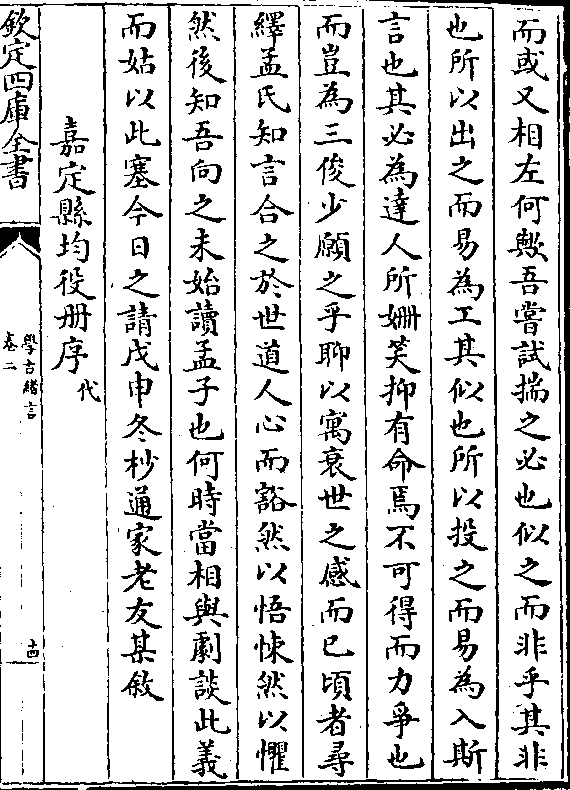 而或又相左何歟吾嘗試揣之必也似之而非乎其非
也所以出之而易為工其似也所以投之而易為入斯
言也其必為達人所姍笑抑有命焉不可得而力爭也
而豈為三俊少願之乎聊以寓衰世之感而已頃者尋
繹孟氏知言合之於世道人心而豁然以悟悚然以懼
然後知吾向之未始讀孟子也何時當相與劇談此義
而姑以此塞今日之請戊申冬杪通家老友某敘
嘉定縣均役册序代
欽定四庫全書
學古緒言
卷二
十四